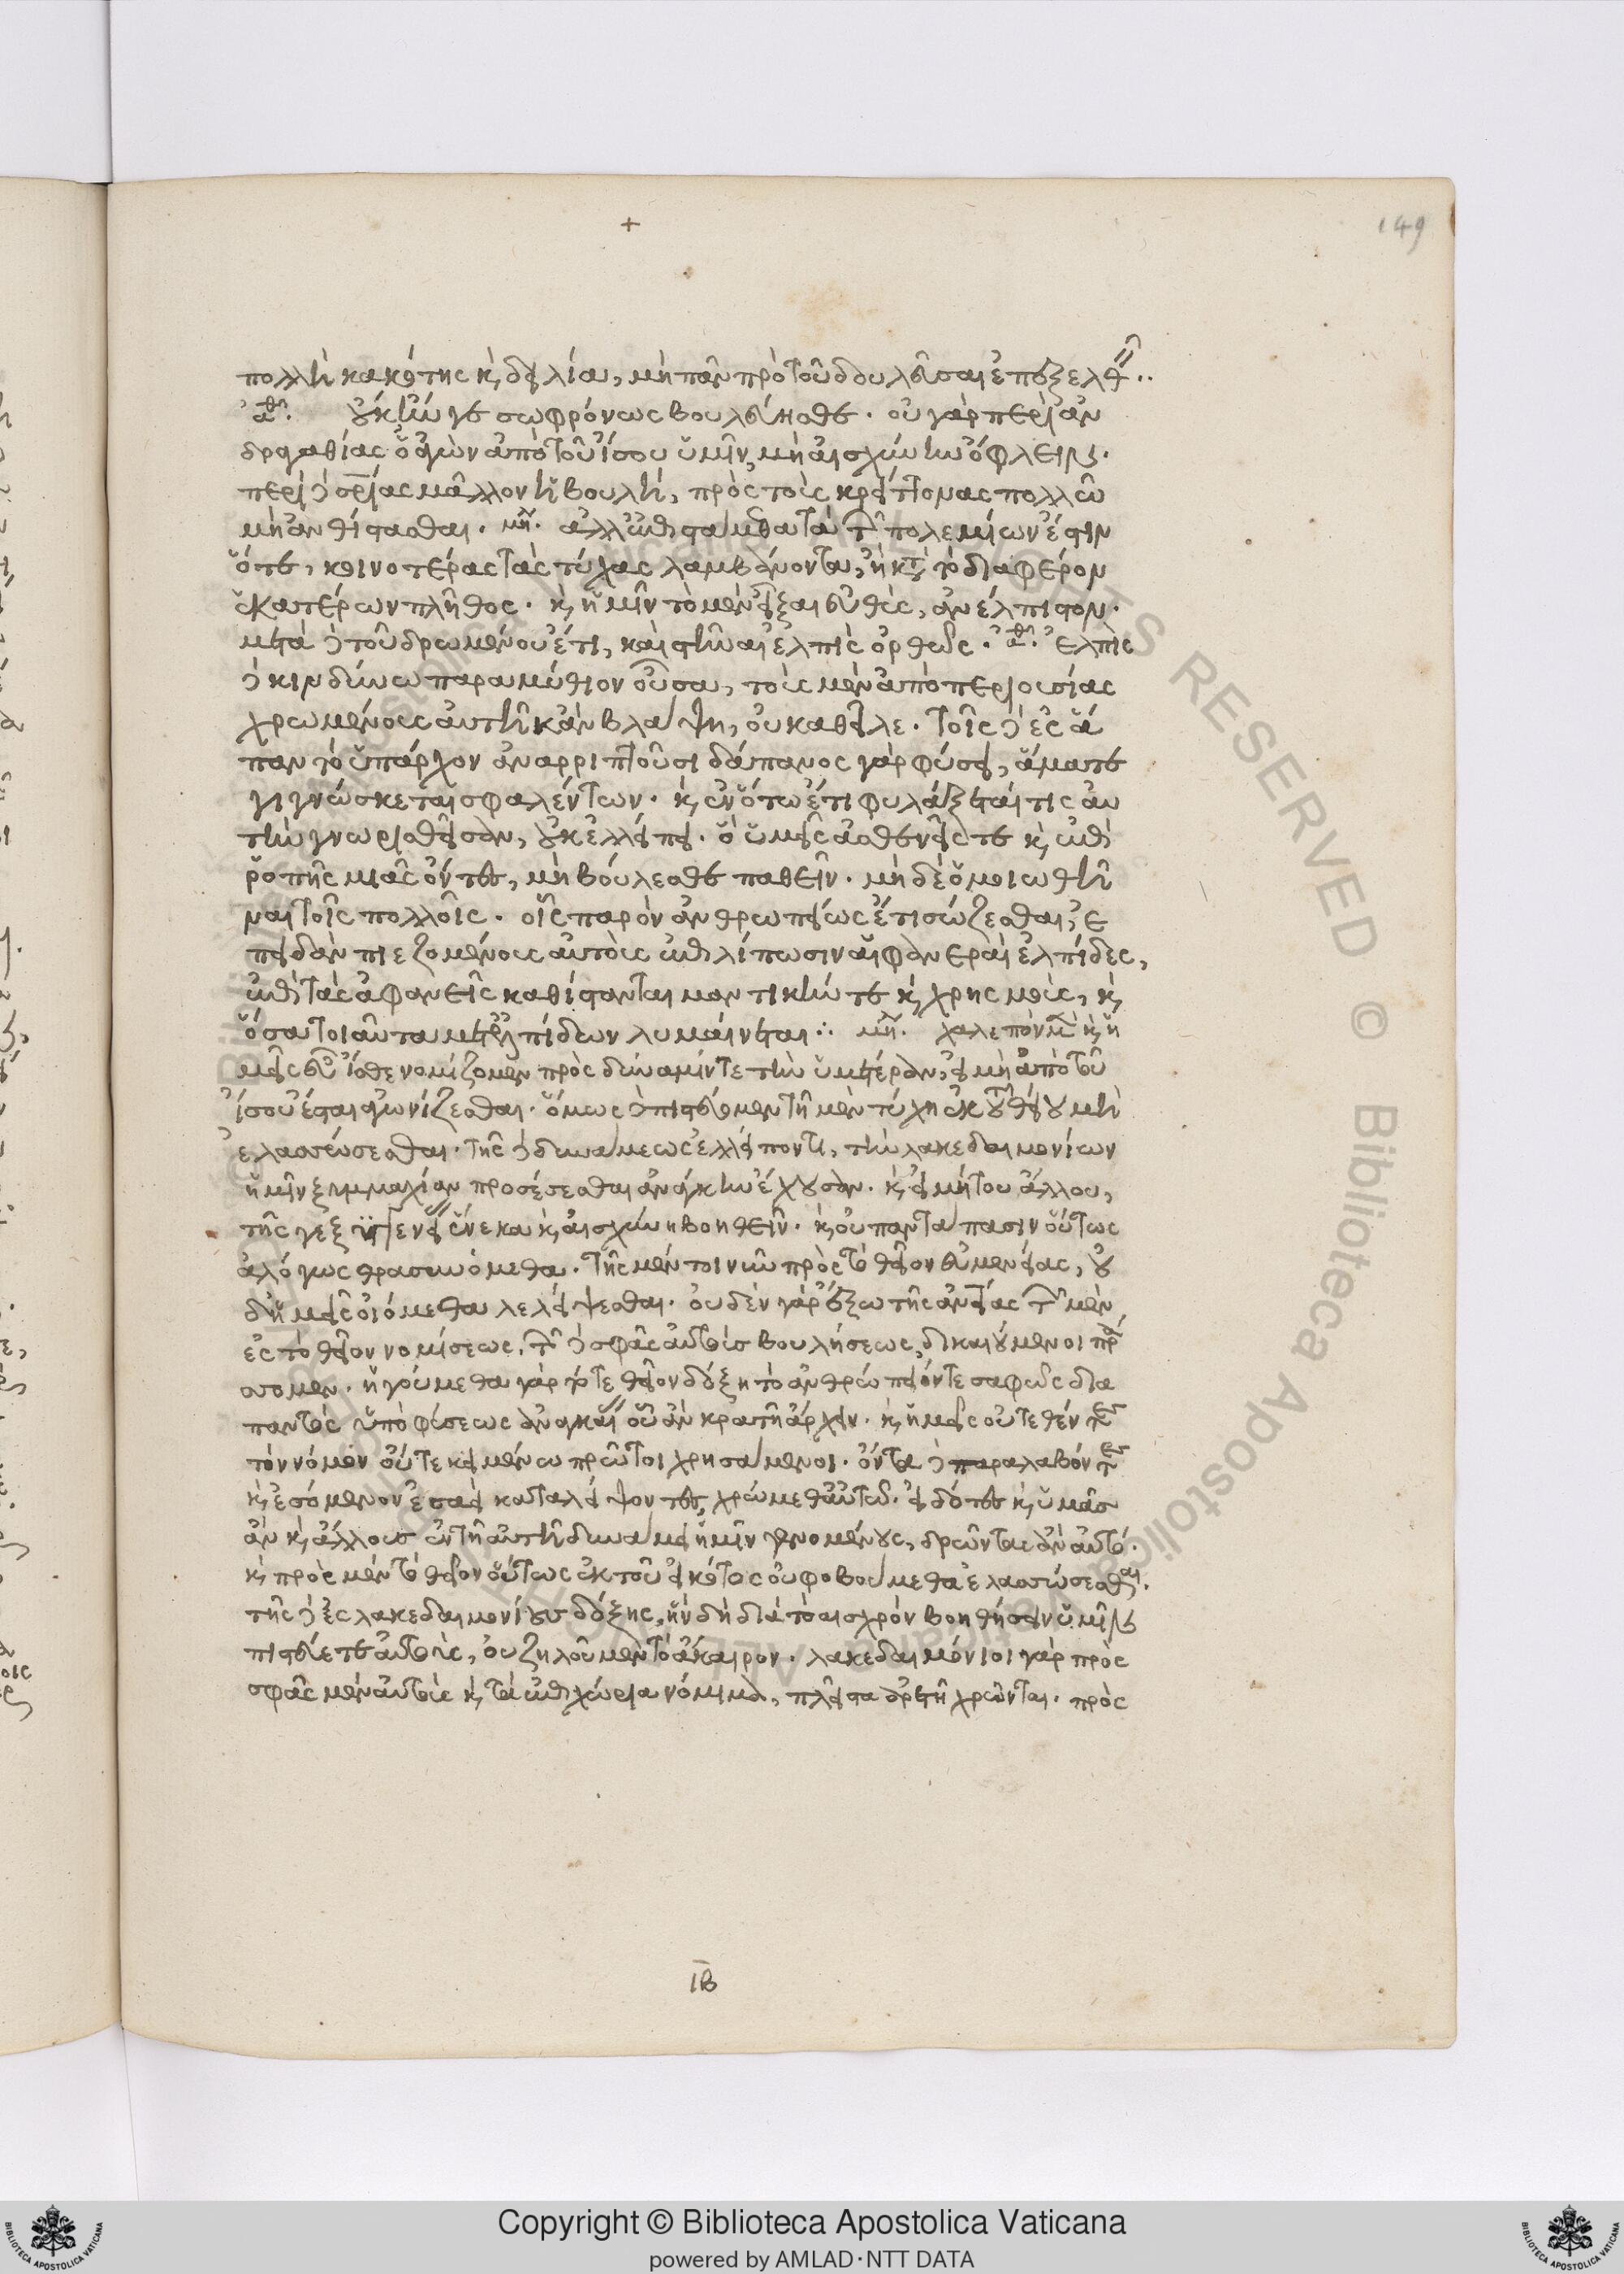 +
149
πολλὴ κακότης κ δειλία, μὴ πᾶν πρὸ τοῦ δουλεῦσαι ἐπεξελθεῖν..
ἀθ. οὐκ ἤν γε σωφρόνως βουλεύησθε. οὐ γὰρ περὶ ἀν
δραγαθίας ὁ ἀγὼν ἀπὸ τοῦ ἴσου ὑμῖν, μὴ αἰσχύνην ὄφλειν.
περὶ δὲ σωτηρίας μᾶλλον ἡ βουλή, πρὸς τοὺς κρείττονας πολλῶ
μὴ ἀνθίστασθαι. μη. ἀλλ' ἐπιστάμεθα τὰ τῶν πολεμίων ἔστιν
ὅτε, κοινοτέρας τὰς τύχας λαμβάνοντα, ἢ κατὰ τὸ διαφέρον
ἑκατέρων πλῆθος. κ ἡμῖν τὸ μὲν εἶξαι εὐθὺς, ἀνέλπιστον.
μετὰ δὲ τοῦ δρωμένου ἔτι, καὶ στῆναι ἐλπὶς ὀρθῶς. ἀθ. ἐλπὶς
δὲ κινδύνω παραμύθιον οὖσα, τοὺς μὲν ἀπὸ περιουσίας
χρωμένους αὐτῆ κἂν βλάψη, οὐ καθεῖλε. τοῖς δὲ ἐς ἅ
παν τὸ ὑπάρχον ἀναρριπτοῦσι δάπανος γὰρ φύσει, ἅμα τε
γιγνώσκεται σφαλέντων. κ ἐν ὅτω ἔτι φυλάξεταί τις αὐ
τὴν γνωρισθεῖσαν, οὐκ ἐλλείπει. ὃ ὑμεῖς ἀσθενεῖς τε κ ἐπὶ
ῥοπῆς μιᾶς ὄντες, μὴ βούλεσθε παθεῖν. μηδὲ ὁμοιωθῆ
ναι τοῖς πολλοῖς. οἷς παρὸν ἀνθρωπείως ἔτι σώζεσθαι, ἐ
πειδὰν πιεζομένους αὐτοὺς ἐπιλίπωσιν αἱ φανεραὶ ἐλπίδες,
ἐπὶ τὰς ἀφανεῖς καθίστανται μαντικήν τε κ χρησμοὺς, κ
ὅσα τοιαῦτα μετ' ἐλπίδων λυμαίνεται ∴ μη. χαλεπὸν μὲν κ ἡ
μεῖς εὖ ἴσθε νομίζομεν πρὸς δύναμίν τε τὴν ὑμετέραν, εἰ μὴ ἀπὸ τοῦ
ἴσου ἔσται ἀγωνίζεσθαι. ὅμως δὲ πιστεύομεν τῆ μὲν τύχη ἐκ τοῦ θείου μὴ
ἐλασσώσεσθαι. τῆς δὲ δυνάμεως ἐλλείποντι, τὴν λακεδαιμονίων
ἡμῖν ξυμμαχίαν προσέσεσθαι ἀνάγκην ἔχουσαν. κ εἰ μή του ἄλλου,
τῆς γε ξυγγενείας ἕνεκα κ αἰσχύνη βοηθεῖν. κ οὐ παντάπασιν οὕτως
ἀλόγως θρασυνόμεθα. τῆς μὲν τοίνυν πρὸς τὸ θεῖον εὐμενείας, οὐ
δ' ἡμεῖς οἰόμεθα λελείψεσθαι. οὐδὲν γὰρ ἔξω τῆς ἀνθρωπείας τῶν μὲν
ἐς τὸ θεῖον νομίσεως, τῶν δὲ σφᾶς αὐτοὺς βουλήσεως, δικαιούμενοι πρά
σσομεν. ἡγούμεθα γὰρ τό τε θεῖον δόξη τὸ ἀνθρώπειόν τε σαφῶς δια
παντὸς ὑπὸ φύσεως ἀναγκαίας οὗ ἂν κρατῆ ἄρχειν. κ ἡμεῖς οὔτε θέντες
τὸν νόμον οὔτε κειμένω πρῶτοι χρησάμενοι. ὄντα δὲ παραλαβόντες
κ ἐσόμενον ἐσαεὶ καταλείψοντες, χρώμεθα αὐτῶ. εἰδότες κ ὑμᾶσ
ἂν κ ἄλλουσ ἐν τῆ αὐτῆ δυνάμει ἡμῖν γενομένους, δρῶντας ἂν αὐτό.
κ πρὸς μὲν τὸ θεῖον οὕτως ἐκ τοῦ εἰκότος οὐ φοβούμεθα ἐλασσώσεσθαι.
τῆς δὲ ἐς λακεδαιμονίουσ δόξης, ἣν δὴ διὰ τὸ αἰσχρὸν βοηθήσειν ὑμῖν
πιστεύετε αὐτοὺς, οὐ ζηλοῦμεν τὸ ἄκαιρον. λακεδαιμόνιοι γὰρ πρὸς
σφᾶς μὲν αὐτοὺς κ τὰ ἐπιχώρια νόμιμα, πλεῖστα ἀρετῆ χρῶνται. πρὸς
ΙΒ
Copyright © Biblioteca Apostolica Vaticana
powered by AMLAD·NTT DATA